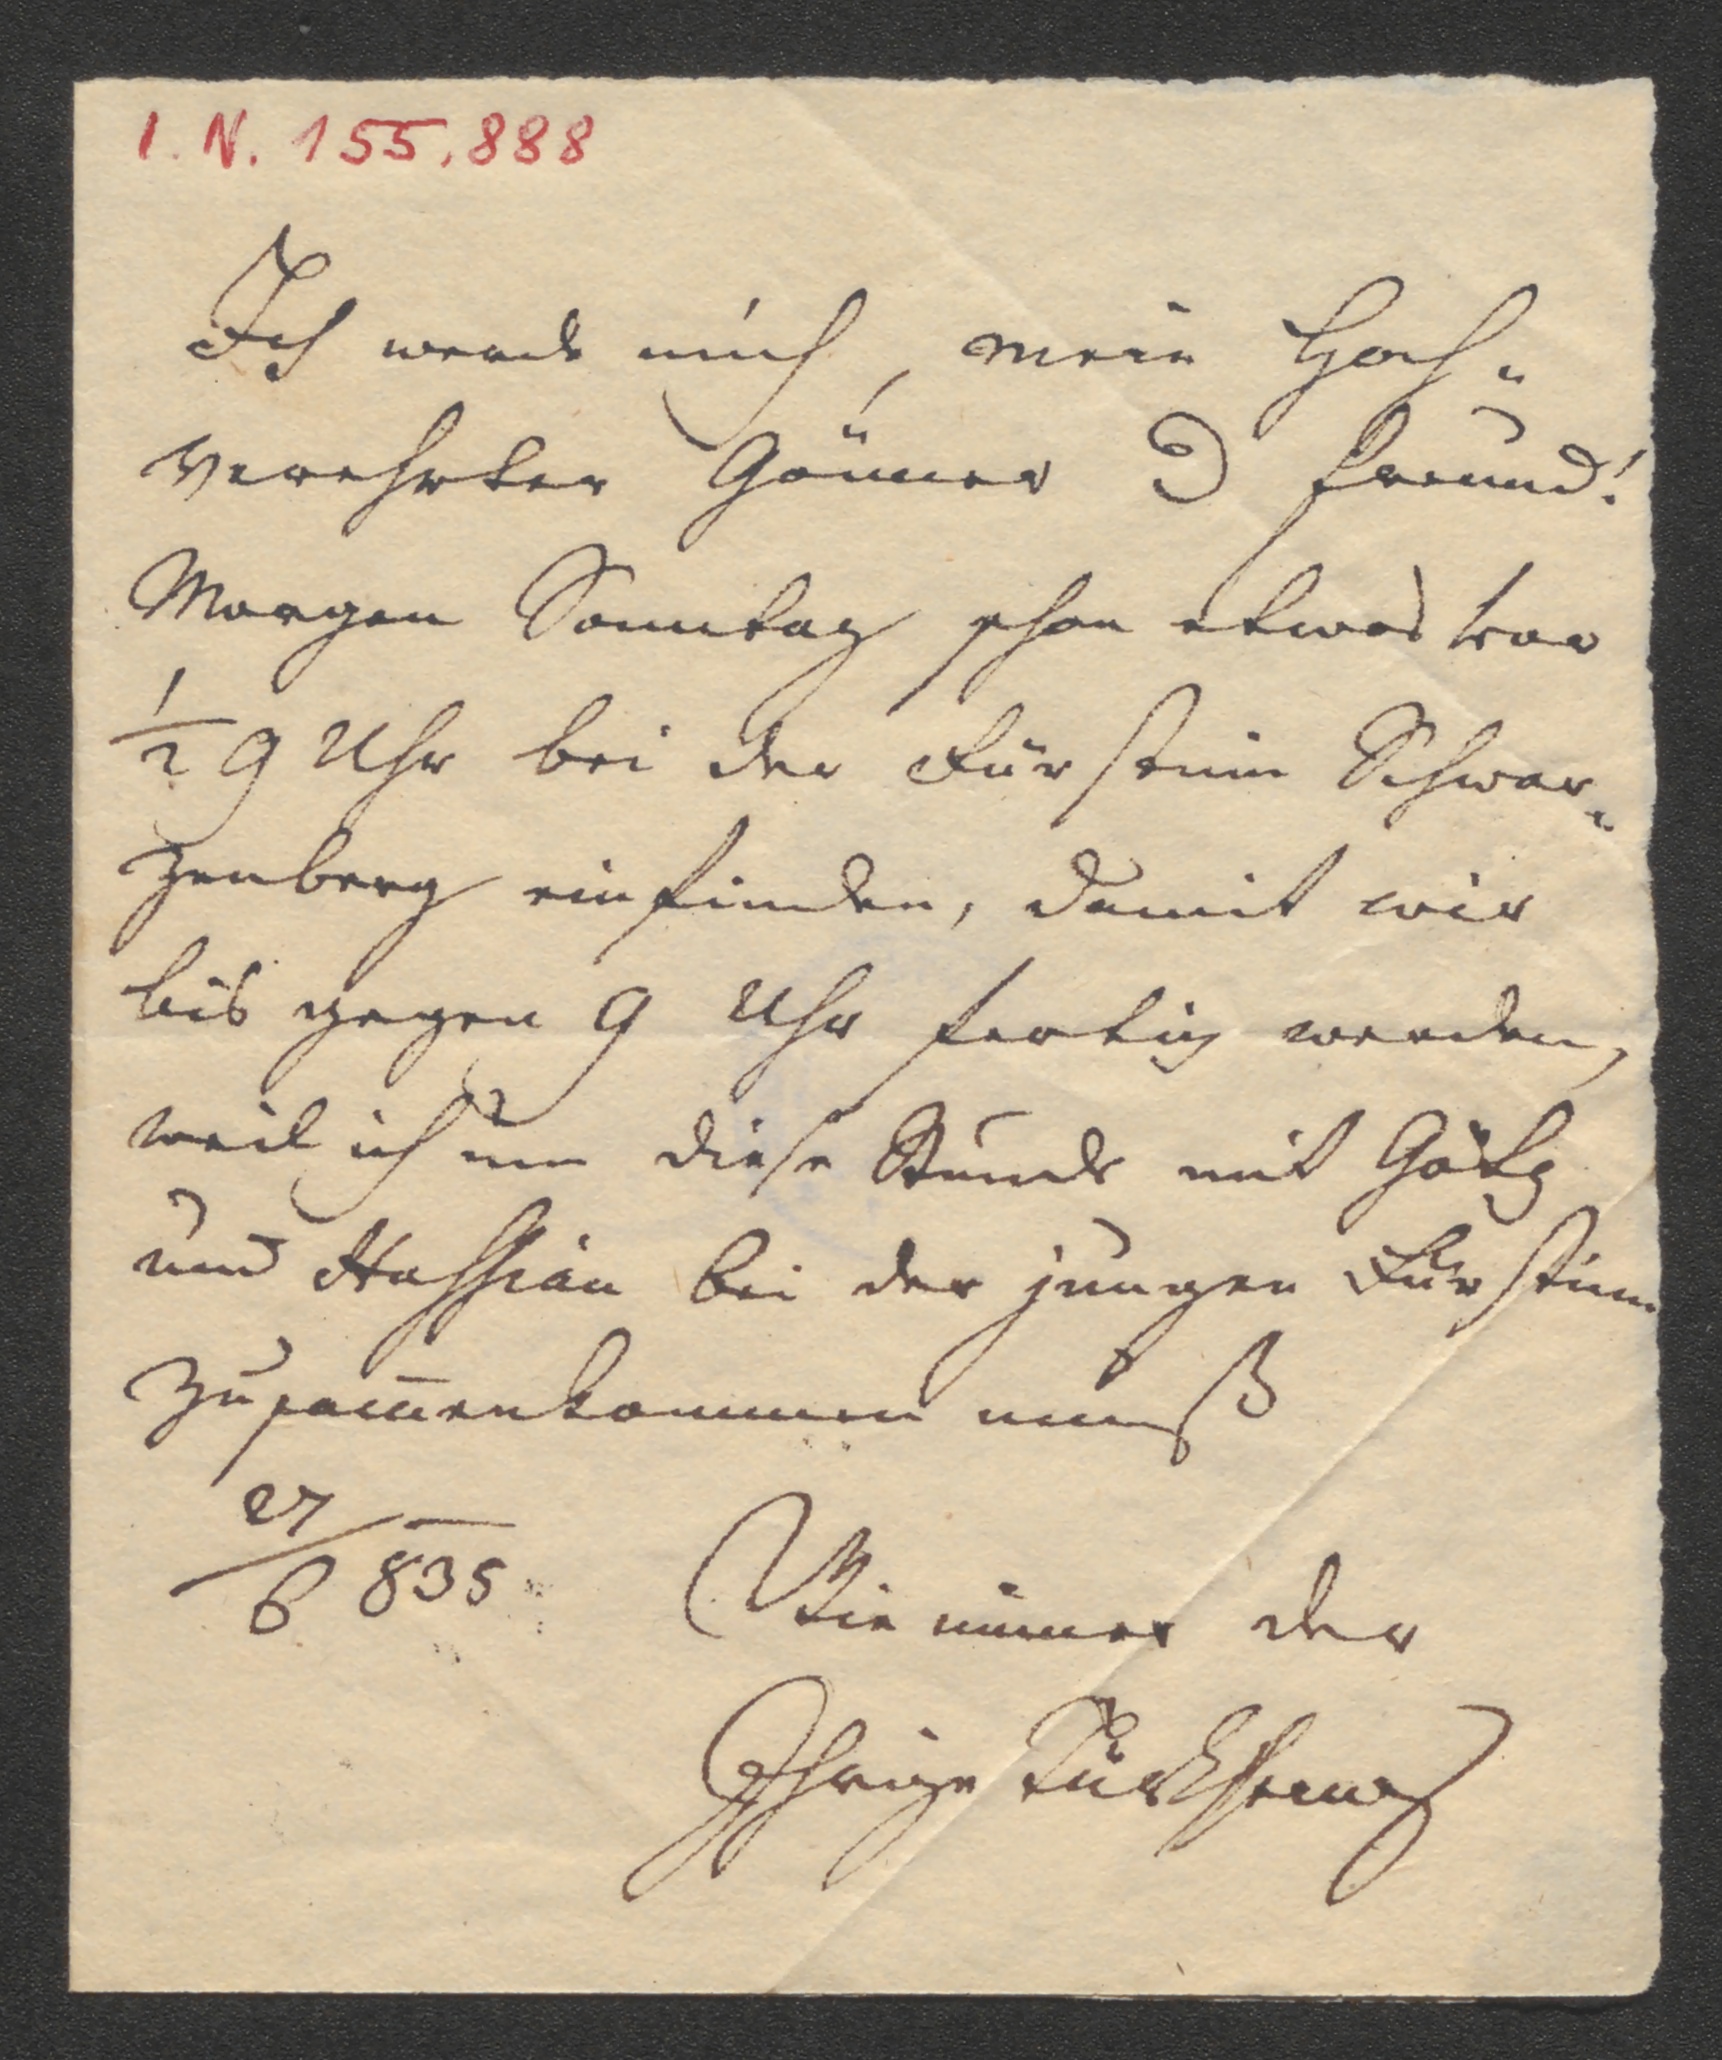 I. N. 155.888
Ich werde mich, mein Hoch-
verehrter Gönner u Freund!
Morgen Sonntag schon etwas vor
1/2 9 Uhr bei der Fürstinn Schwar-
zenberg einfinden, damit wir
bis gegen 9 Uhr fertig werden,
weil ich um diese Stunde mit Götz
und bei der jungen Fürstinn
zusam̅enkommen muß
27/6 835
Wie im̅er der
Ihrige Türkheim